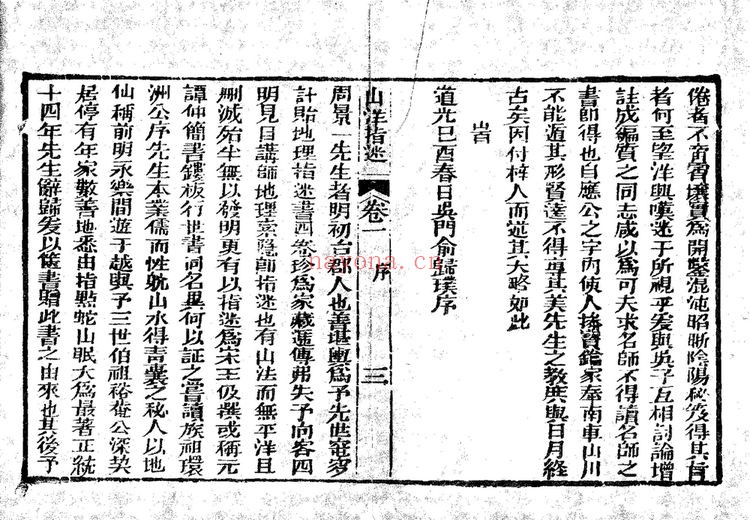 倦者不啻寶壤賈爲開鑿混沌昭晰陰陽秘笈得其旨
者何至望洋興嘆迷于所視乎爰與吳子互相討論增
註成編質之同志咸以爲可夫求名師不得讀名師之
書卽得也自應公之宇內使人披覽鑑家奉南車山川
不能遁其形賢達不得專其美先生之教庶與日月經
古矣因付梓人而道其大略如此
道光己酉春日吳門俞歸璞序
山洋指迷 卷一 序 三
周景一先生者明初台郡人也善堪輿爲予先世窀穸
計貽地理指迷書四卷珍爲家藏遞傳弗失予向客四
明見目講師地理索隱師指迷也有山法而無平洋且
刪減殆半無以發明更有以指迷爲宋王伋撰或稱元
譚仲簡書鏤板行世書同名異何以証之嘗讀族祖環
洲公序先生本業儒而性躭山水得青囊之秘人以地
仙稱前明永樂間遊于越與予三世伯祖裕菴公深契
居停有年家數善地悉由指點蛇山眠犬爲最著正統
十四年先生辭歸爰以篋書贈此書之由來也其後予
nayona.cn